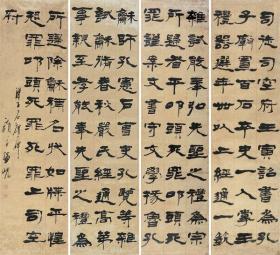 司徒司空府壬寅詔書為孔
子廟置百石卒史一人掌主
禮器選年卌以上經通一藝
雜試能奉弘先聖之禮為宗
所歸者平叩頭叩頭死罪死
罪謹案文書守文學掾魯孔
龢師孔憲戶曹史孔覽等雜
試龢脩春秋嚴氏經通高第
事親至孝能奉先聖之禮為宗
所歸除龢補名狀如牒平惶
恐叩頭死罪死罪上司空
府